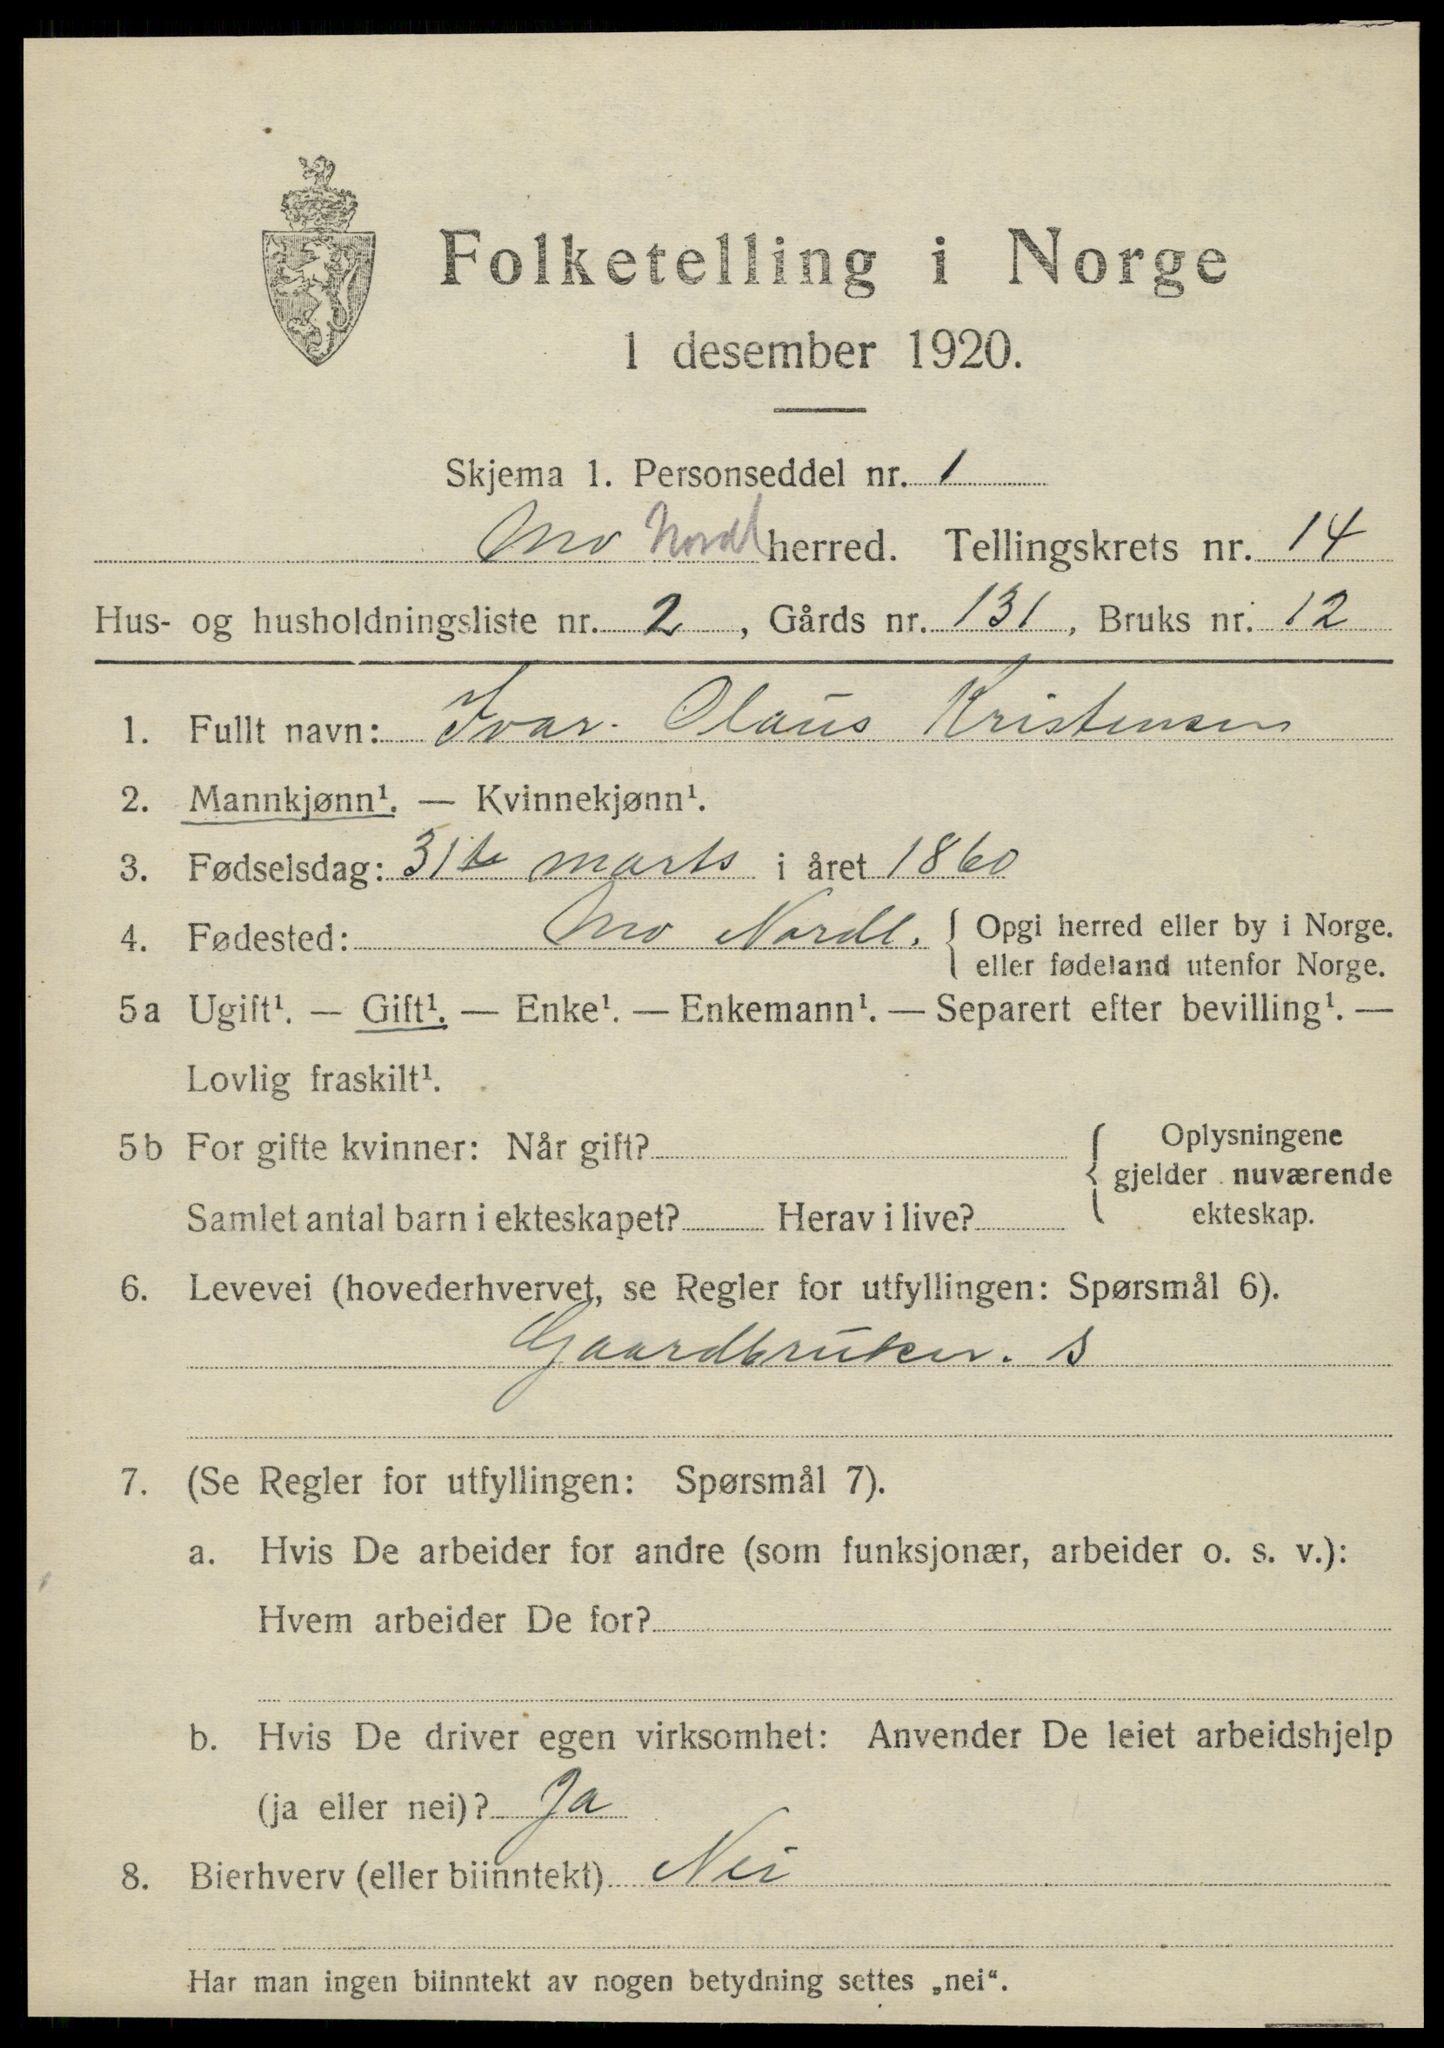 Folketelling i Norge
1 desember 1920.
Skjema 1. Personseddel nr. 1
Mo Nordl herred. Tellingskrets nr. 14
Hus- og husholdningsliste nr. 2, Gårds nr. 131, Bruks nr. 12
1. Fullt navn: Ivar Olaus Kristensen
2. Mannkjønn¹. — Kvinnekjønn¹.
3. Fødselsdag: 31te marts i året 1860
4. Fødested: Mo Nordl. { Opgi herred eller by i Norge.
eller fødeland utenfor Norge.
5a Ugift¹. — Gift¹. — Enke¹. — Enkemann¹. — Separert efter bevilling¹. —
Lovlig fraskilt¹.
5b For gifte kvinner: Når gift?
Samlet antal barn i ekteskapet? Herav i live?
{ Oplysningene
gjelder nuværende
ekteskap.
6. Levevei (hovederhvervet, se Regler for utfyllingen: Spørsmål 6).
Gaardbruker. s
7. (Se Regler for utfyllingen: Spørsmål 7).
a. Hvis De arbeider for andre (som funksjonær, arbeider o. s. v.):
Hvem arbeider De for?
b. Hvis De driver egen virksomhet: Anvender De leiet arbeidshjelp
(ja eller nei)? Ja
8. Bierhverv (eller biinntekt) Nei
Har man ingen biinntekt av nogen betydning settes „nei“.